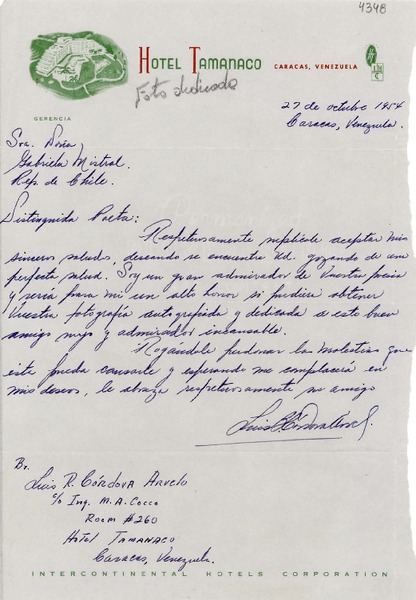 4348
HOTEL TAMANACO CARACAS, VENEZUELA
Foto dedicada
GERENCIA
27 de octubre 1954
Caracas, Venezuela.
Sra. Doña
Gabriela Mistral.
Rep. de Chile.
Distinguida Poeta:
Respetuosamente suplícole aceptar mis
sinceros saludos, deseando se encuentre Ud. gozando de una
perfecta salud. Soy un gran admirador de vuestra poesía
y sería para mi un alto honor si pudiera obtener
vuestra fotografía autografiada y dedicada a este buen
amigo suyo y admirador incansable.
Rogandole perdonar las molestias que
este pueda causarle y esperando me complacerá en
mis deseos, le abraza respetuosamente su amigo
Luis R. Córdova Arvelo
Luis R. CÓRDOVA ARVELO
c/o Ing. M. A. COCCO
ROOM #260
HOTEL TAMANACO
Caracas, Venezuela.
INTERCONTINENTAL HOTELS CORPORATION